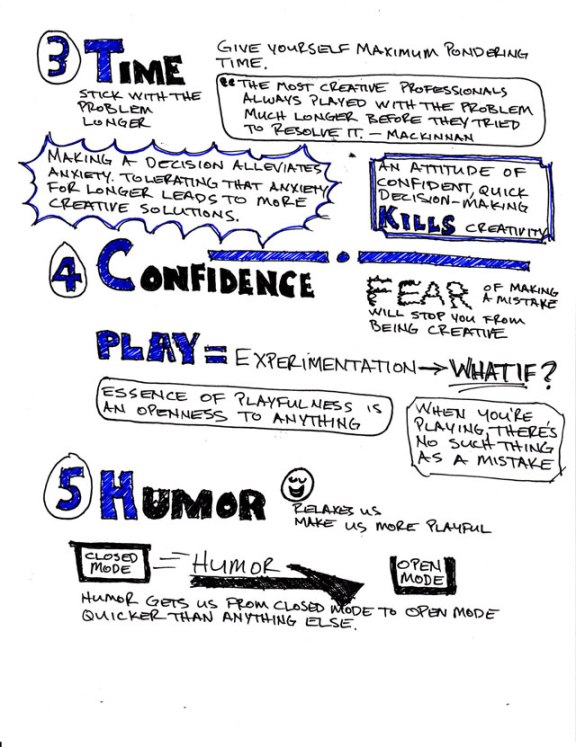 3 TIME
STICK WITH THE
PROBLEM
LONGER
GIVE YOURSELF MAXIMUM PONDERING
TIME.
"THE MOST CREATIVE PROFESSIONALS
ALWAYS PLAYED WITH THE PROBLEM
MUCH LONGER BEFORE THEY TRIED
TO RESOLVE IT. – MACKINNAN
MAKING A DECISION ALLEVIATES
ANXIETY. TOLERATING THAT ANXIETY
FOR LONGER LEADS TO MORE
CREATIVE SOLUTIONS.
AN ATTITUDE OF
CONFIDENT, QUICK
DECISION-MAKING
KILLS CREATIVITY
4 CONFIDENCE
FEAR OF MAKING
A MISTAKE
WILL STOP YOU FROM
BEING CREATIVE
PLAY = EXPERIMENTATION → WHAT IF?
ESSENCE OF PLAYFULNESS IS
AN OPENNESS TO ANYTHING
WHEN YOU'RE
PLAYING, THERE'S
NO SUCH THING
AS A MISTAKE
5 HUMOR
RELAXES US
MAKE US MORE PLAYFUL
CLOSED
MODE
HUMOR
OPEN
MODE
HUMOR GETS US FROM CLOSED MODE TO OPEN MODE
QUICKER THAN ANYTHING ELSE.